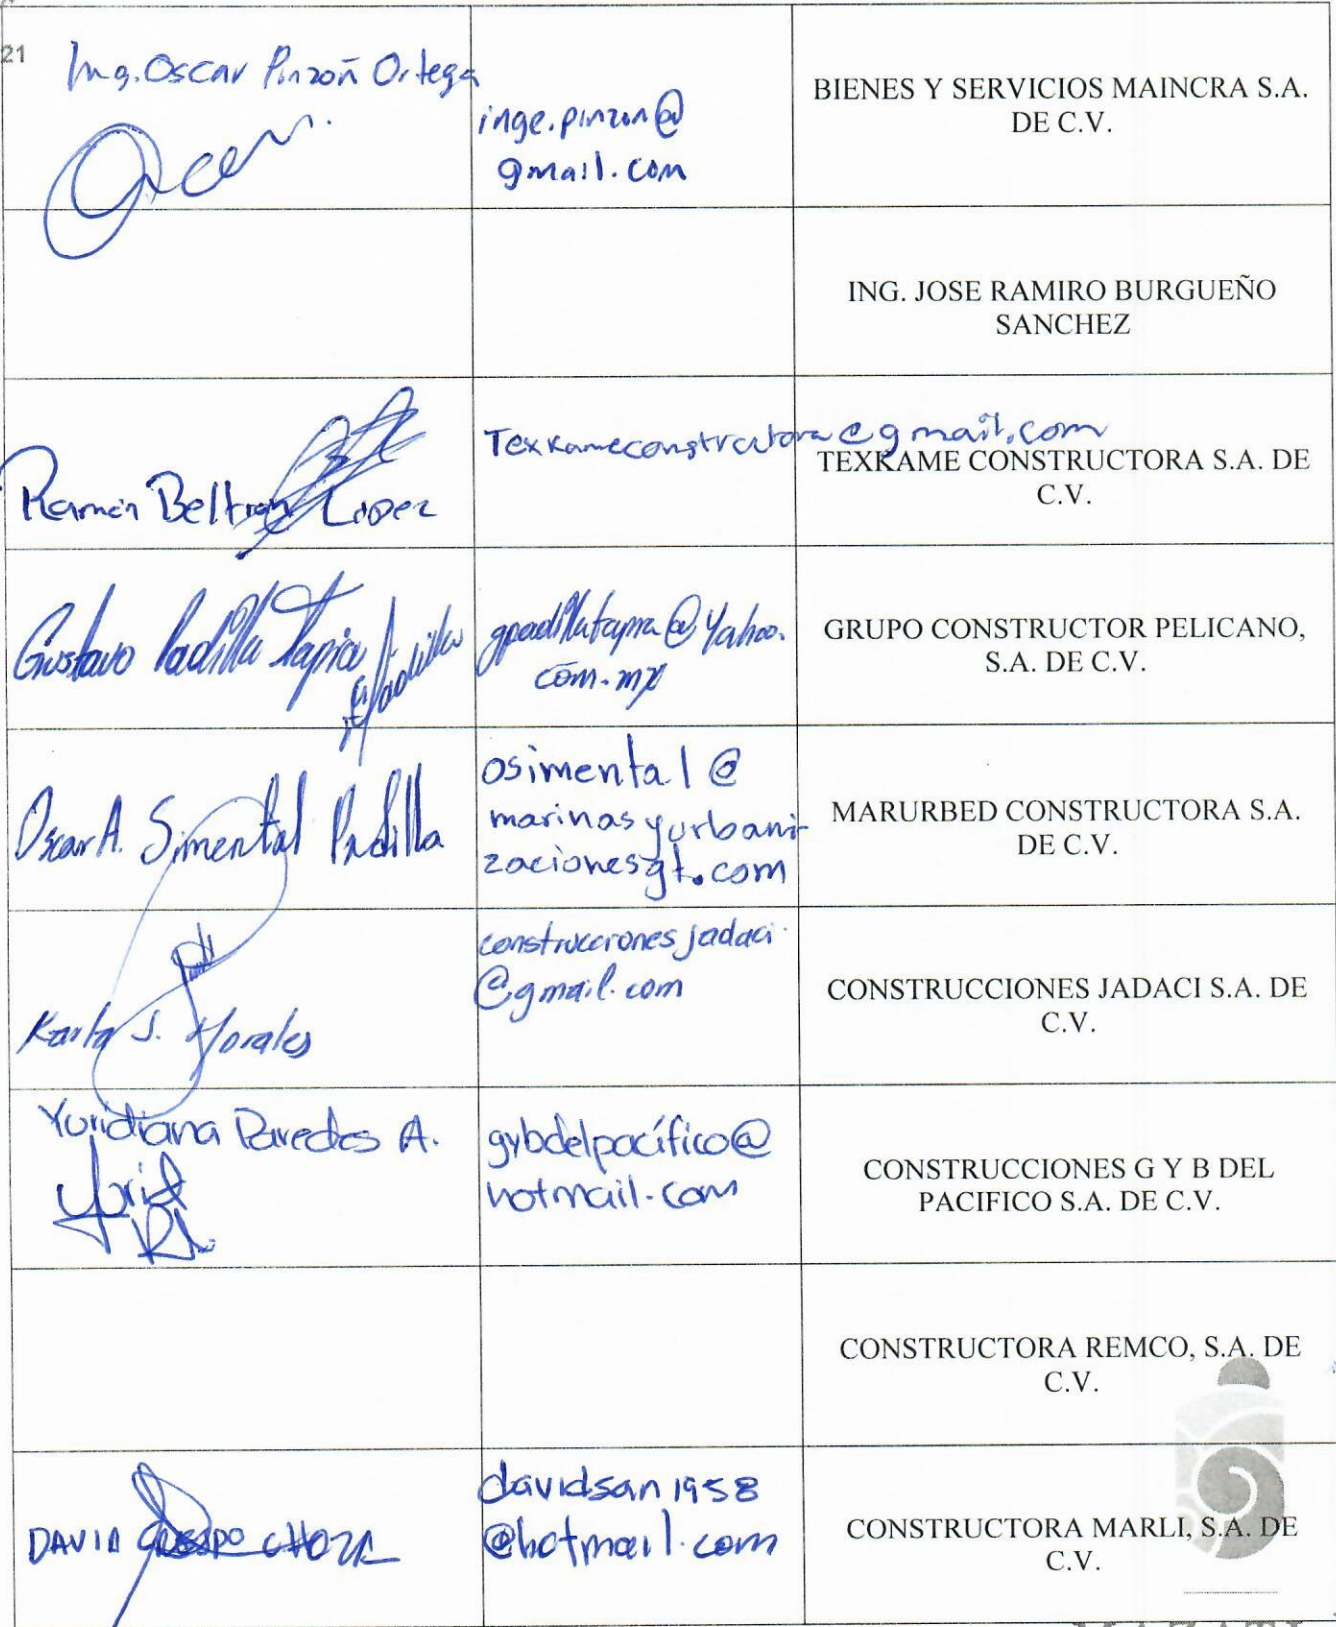 21
Ing. Oscar Pinzón Ortega
inge.pinzon@
gmail.com
BIENES Y SERVICIOS MAINCRA S.A.
DE C.V.
ING. JOSE RAMIRO BURGUEÑO
SANCHEZ
Ramón Beltran Lopez
Texkameconstructora@gmail.com
TEXKAME CONSTRUCTORA S.A. DE
C.V.
Gustavo Padilla Tapia
gpadillatapia@yahoo.
com.mx
GRUPO CONSTRUCTOR PELICANO,
S.A. DE C.V.
Oscar A. Simental Padilla
osimental@
marinasyurbani-
zacionesgt.com
MARURBED CONSTRUCTORA S.A.
DE C.V.
Karla J. Morales
construccionesjadaci
@gmail.com
CONSTRUCCIONES JADACI S.A. DE
C.V.
Yuridiana Paredes A.
gybdelpacífico@
hotmail.com
CONSTRUCCIONES G Y B DEL
PACIFICO S.A. DE C.V.
CONSTRUCTORA REMCO, S.A. DE
C.V.
DAVID CRESPO CHOZA
davidsan1958
@hotmail.com
CONSTRUCTORA MARLI, S.A. DE
C.V.